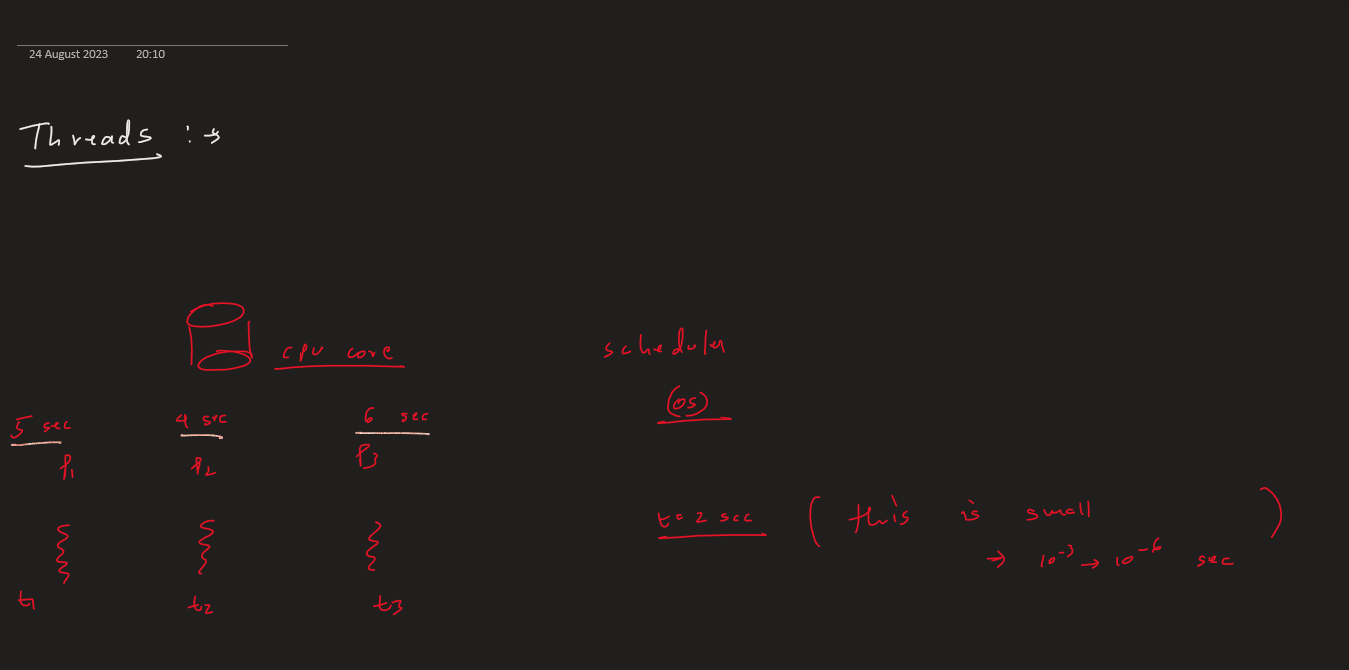 24 August 2023 20:10
Threads :→
CPU core
scheduler
(OS)
5 sec 4 sec 6 sec
P1 P2 P3
t = 2 sec ( this is small )
→ 10^-3 → 10^-6 sec
t1 t2 t3